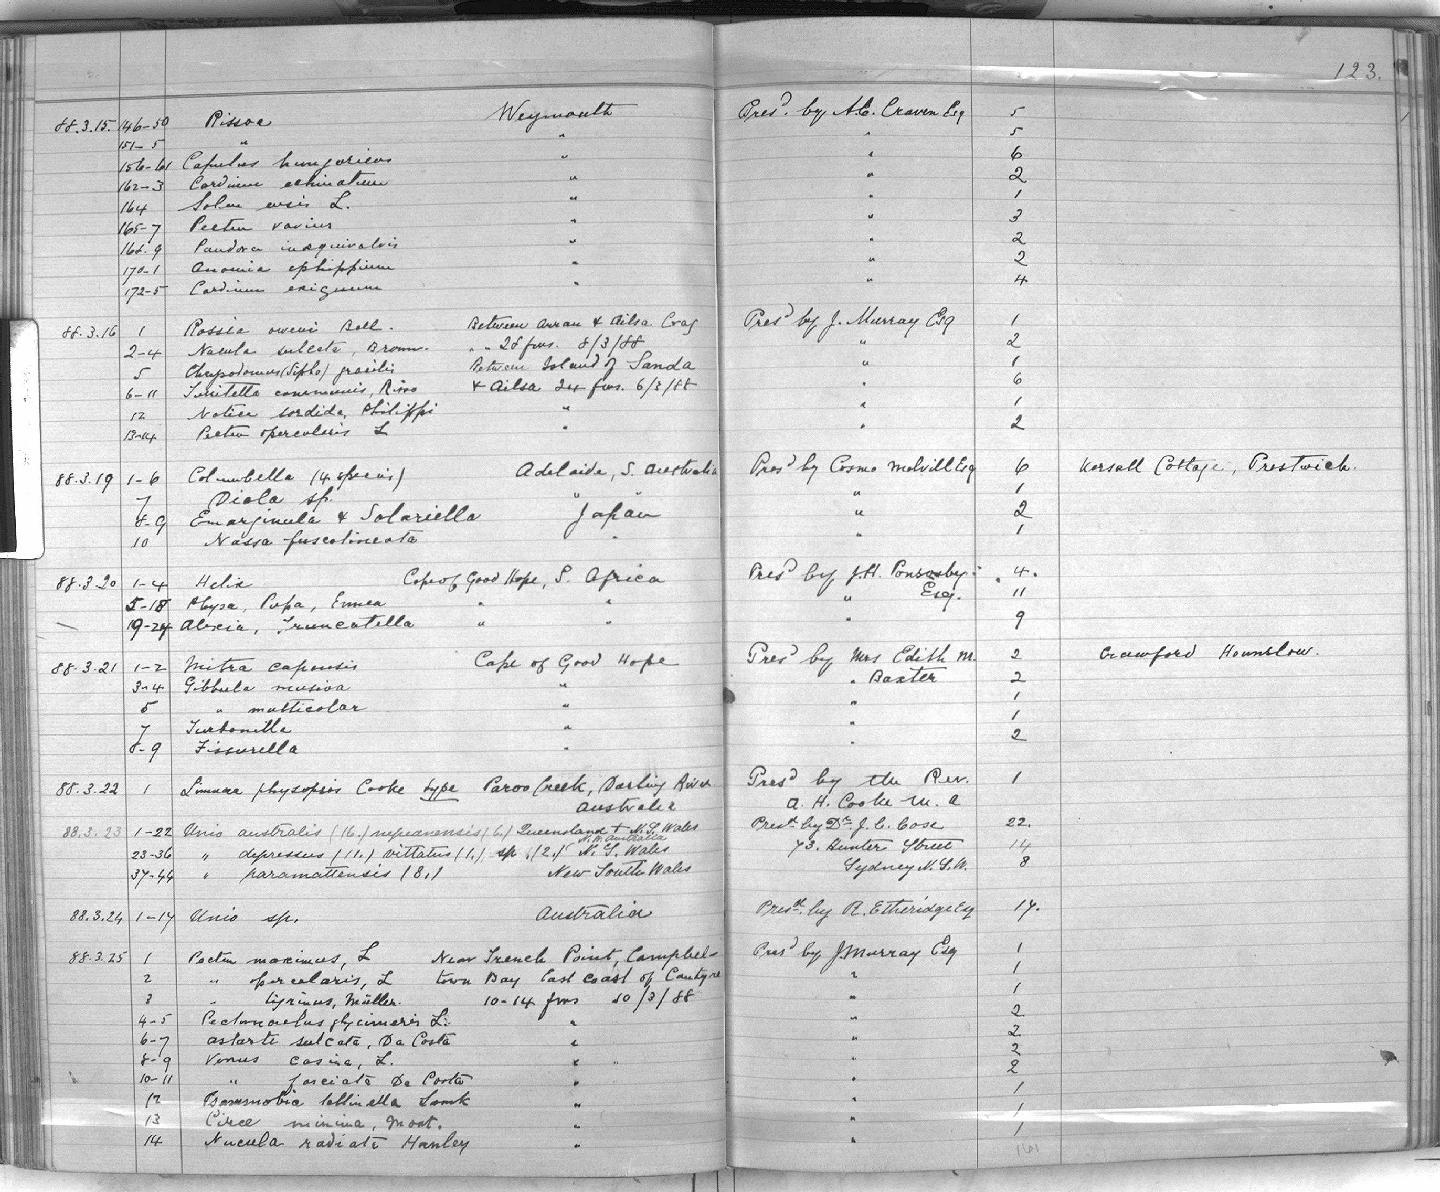 123.
88.3.15. 146-50 Rissoa Weymouth Pres^d by A.E. Craven Esq 5
151-5 " " " 5
156-61 Capulus hungaricus " " 6
162-3 Cardium echinatum " " 2
164 Solen ensis L. " " 1
165-7 Pecten varius " 3
168-9 Pandora inaequivalvis " " 2
170-1 Anomia ephippium " " 2
172-5 Cardium exiguum " " 4
88.3.16 1 Rossia oweni Ball. Between Arran & Ailsa Crag Pres^d by J. Murray Esq 1
2-4 Nucula sulcata, Bronn. " " 28 fms. 8/3/88 " 2
5 Chrysodomus (Sipho) gracilis Between Island of Sanda " 1
6-11 Turritella communis, Risso & Ailsa 24 fms. 6/3/88 " 6
12 Natica sordida, Philippi " " 1
13-14 Pecten opercularis L " " 2
88.3.19 1-6 Columbella (4 species) Adelaide, S. Australia Pres^d by Cosmo Melvill Esq 6 Kersall Cottage, Prestwich.
7 Diala sp. " " " 1
8-9 Emarginula & Solariella Japan " 2
10 Nassa fuscolineata " " 1
88.3.20 1-4 Helix Cape of Good Hope, S. Africa Pres^d by J.H. Ponsonby. 4.
5-18 Physa, Pupa, Ennea " " " Esq. 11
19-24 Alexia, Truncatella " " " 9
88.3.21 1-2 Mitra capensis Cape of Good Hope Pres^d by Mrs Edith M. 2 Crawford Hounslow.
3-4 Gibbula musiva " " Baxter 2
5 " multicolor " " 1
7 Turbonilla " " 1
8-9 Fissurella " " 2
88.3.22 1 Limnea physopsis Cooke type Paroo Creek, Darling River Pres^d by the Rev. 1
Australia A. H. Cooke M. A
88.3.23 1-22 Unio australis (16.) nepeanensis (6.) Queensland & N.S. Wales Pres^d by Dr. J. C. Cox 22.
N.W. Australia
23-36 " depressus (11.) vittatus (1.) sp. (2.) N.S. Wales 73. Hunter Street 14
37-44 " paramattensis (8.) New South Wales Sydney N.S.W. 8
88.3.24 1-14 Unio sp. Australia Pres^d. by R. Etheridge Esq 14.
88.3.25 1 Pecten maximus, L Near Trench Point, Campbel- Pres^d by J Murray Esq 1
2 " opercularis, L town Bay East coast of Cantyre " 1
3 " tigrinus, Müller. 10-14 fms 10/3/88 " 1
4-5 Pectunculus glycimeris L. " " 2
6-7 Astarte sulcata, Da Costa " " 2
8-9 Venus casina, L. " " " 2
10-11 " fasciata Da Costa " " 2
12 Psammobia tellinella Lamk " " 1
13 Circe minima, Mont. " " 1
14 Nucula radiata Hanley " " 1
161